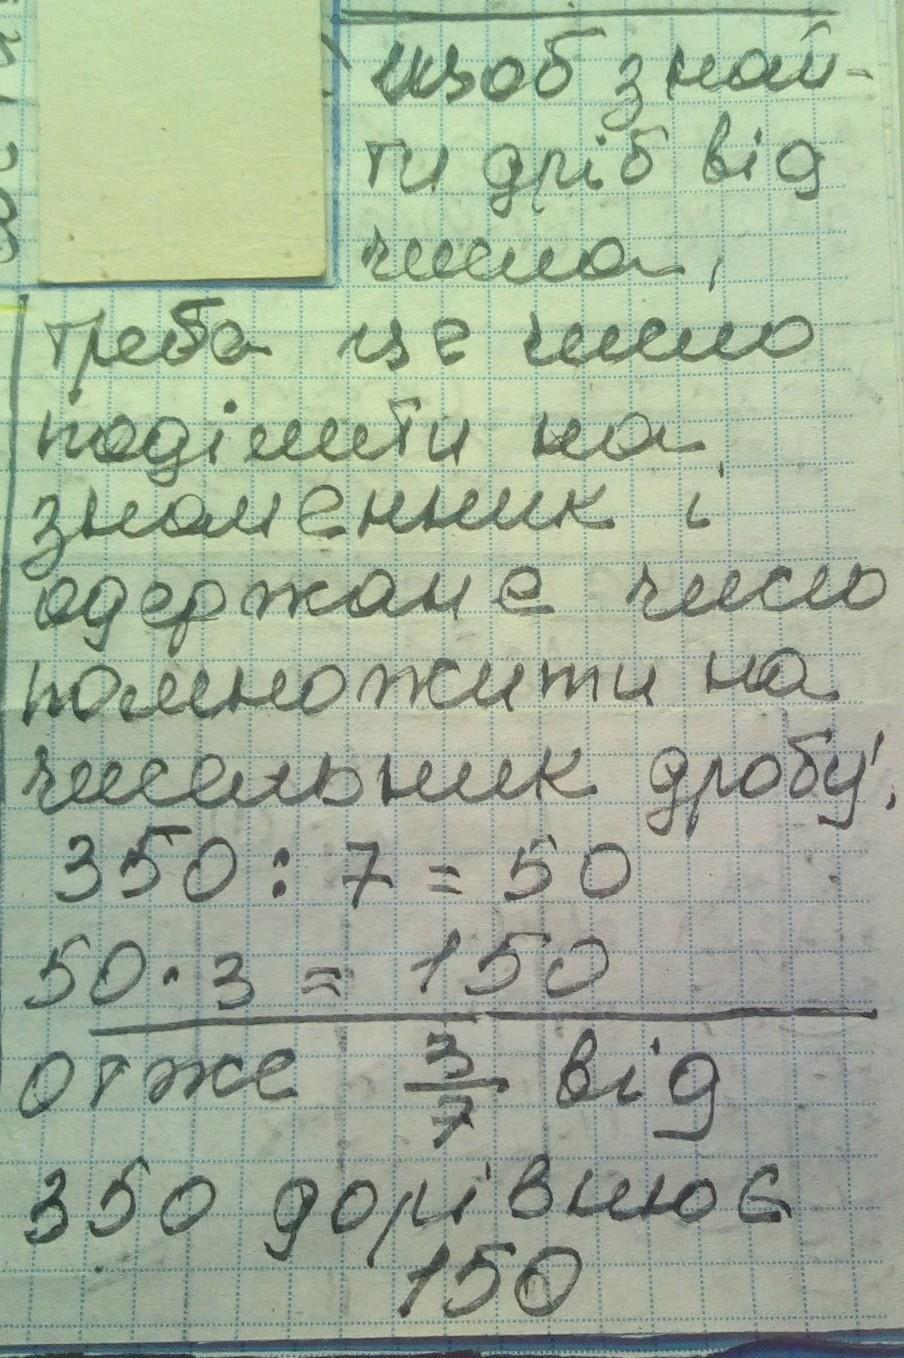 щоб знай-
ти дріб від
числа,
треба це число
поділити на
знаменник і
одержане число
помножити на
чисельник дробу.
350 : 7 = 50
50 · 3 = 150
отже 3/7 від
350 дорівнює
150